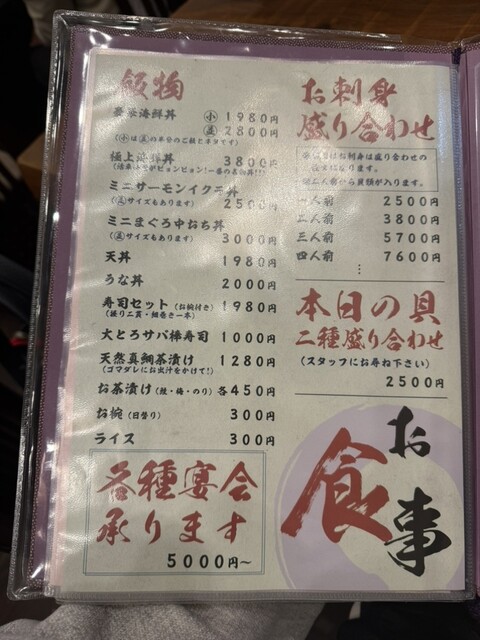 飯物
海鮮丼 小 1980円
並 2800円
極上海鮮丼 3800円
ミニサーモンイクラ丼
サイズもあります) 2500円
ミニまぐろ中おち丼
サイズもあります) 3000円
天丼 1980円
うな丼 2000円
寿司セット (お椀付き) 1980円
(握り二貫・細巻き一本)
大とろサバ棒寿司 1000円
天然真鯛茶漬け 1280円
(ゴマダレにお出汁をかけて!)
お茶漬け (鮭・梅・のり) 各450円
お椀 (日替り) 300円
ライス 300円
各種宴会
承ります
5000円~
お刺身
盛り合わせ
お刺身は盛り合わせの
二人前から貝類が入ります。
一人前 2500円
二人前 3800円
三人前 5700円
四人前 7600円
⋮
本日の貝
二種盛り合わせ
(スタッフにお尋ね下さい)
2500円
お食事